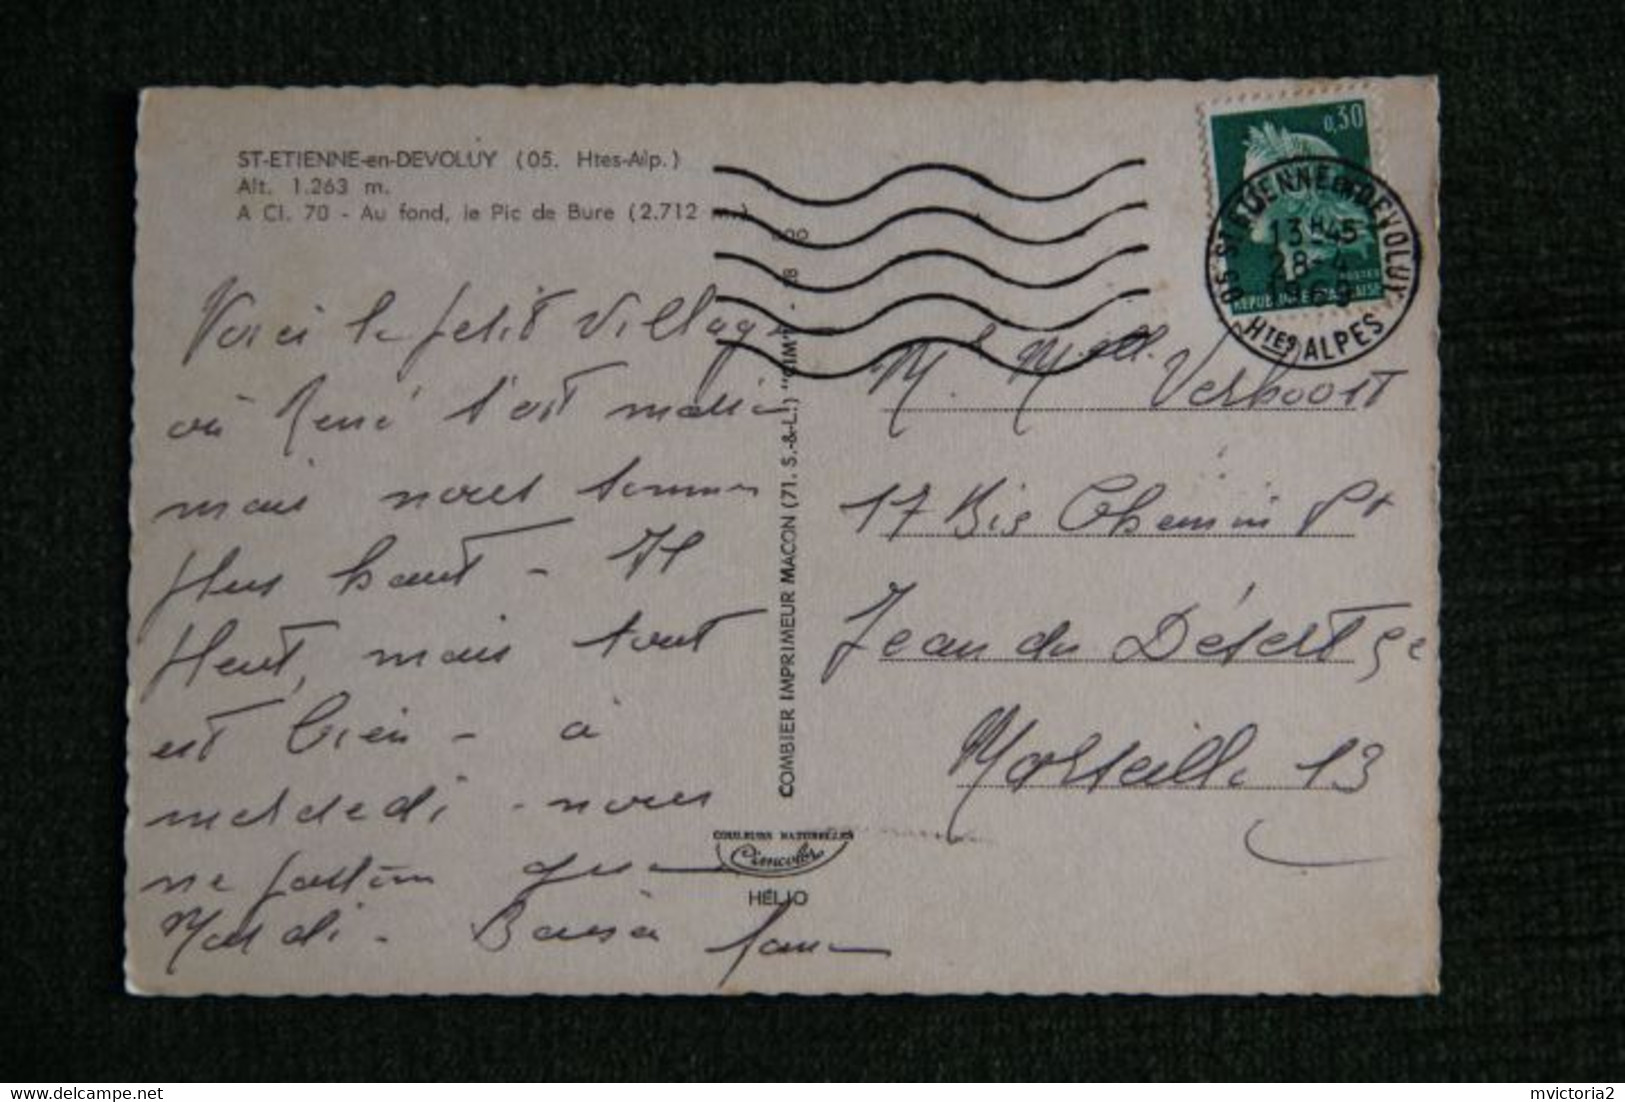 ST-ETIENNE-en-DEVOLUY (05. Htes-Alp.)
Alt. 1.263 m.
A Ci. 70 - Au fond, le Pic de Bure (2.712 m.)
Voici le petit village
où René s'est marié
mais nous sommes
plus haut - Il
pleut, mais tout
est bien - à
mercredi - nous
ne partons que
Mardi - Baisers
COMBIER IMPRIMEUR MACON (71. S.-&-L.) "CIM"
COULEURS NATURELLES
Cimcolor
HÉLIO
0,30
POSTES
REPUBLIQUE FRANCAISE
05 ST ETIENNE EN DEVOLUY
13H45
28-4
1969
HTES ALPES
M. Mell. Verhoost
17 Bis Chemin St
Jean du Désert 5e
Marseille 13
mvictoria2